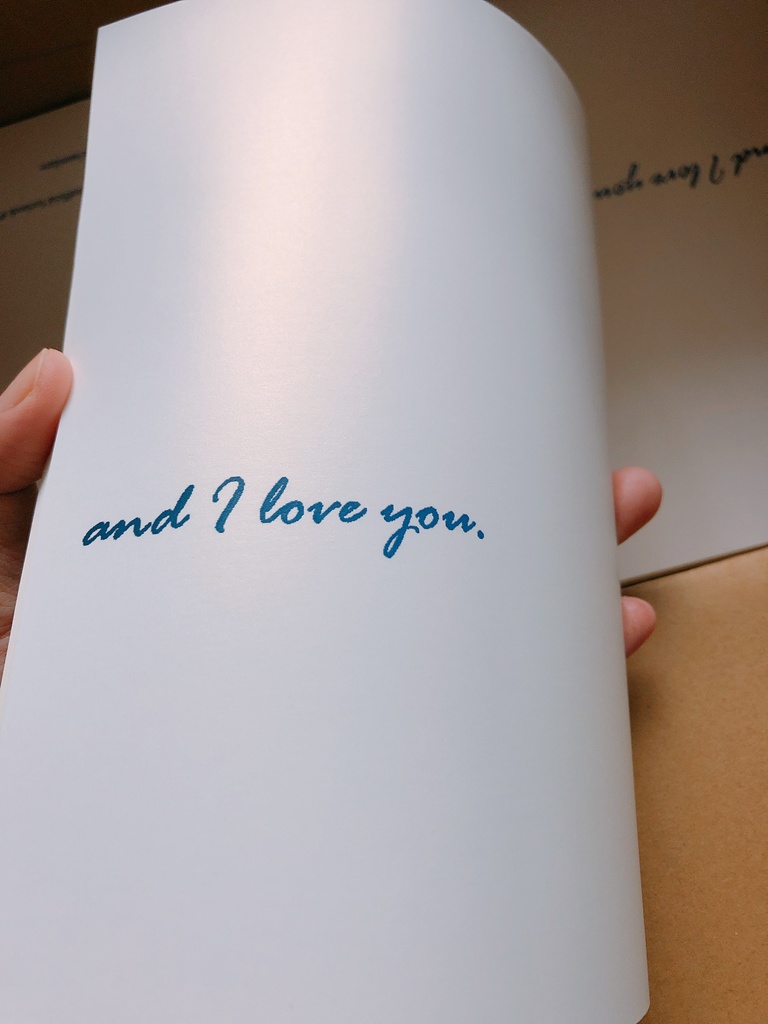 and I love you.
and I love you